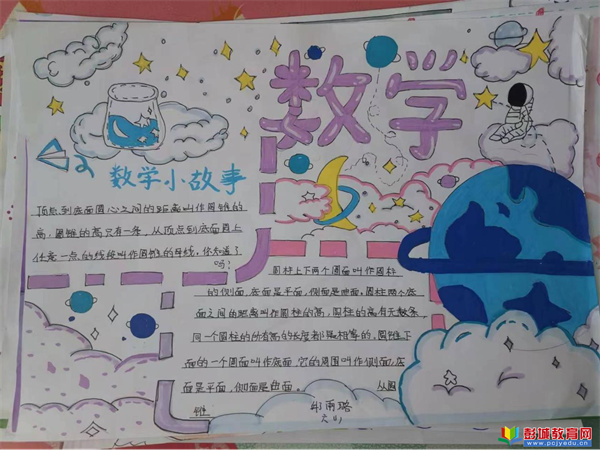 数学
数学小故事
顶点到底面圆心之间的距离叫作圆锥的
高,圆锥的高只有一条,从顶点到底面圆上
任意一点的线段叫作圆锥的母线,你知道了
吗!
圆柱上下两个圆面叫作圆柱
的侧面,底面是平面,侧面是曲面,圆柱两个底
面之间的距离叫作圆柱的高,圆柱的高有无数条
同一个圆柱的所有高的长度都是相等的,圆锥下
面的一个圆面叫作底面,它的周围叫作侧面,底
面是平面,侧面是曲面。 从圆
锥
雨珞
彭城教育网
www.pcjyedu.cn